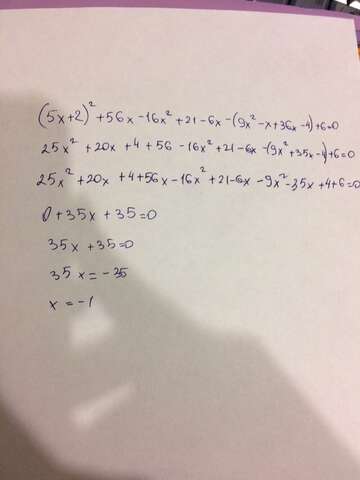 (5x+2)² +56x -16x² +21 -6x -(9x² -x +36x -4)+6=0
25x² +20x +4 +56 -16x² +21 -6x -(9x² +35x -4)+6=0
25x² +20x +4 +56x -16x² +21 -6x -9x² -35x +4+6=0
0+35x +35=0
35x +35=0
35x = -35
x = -1